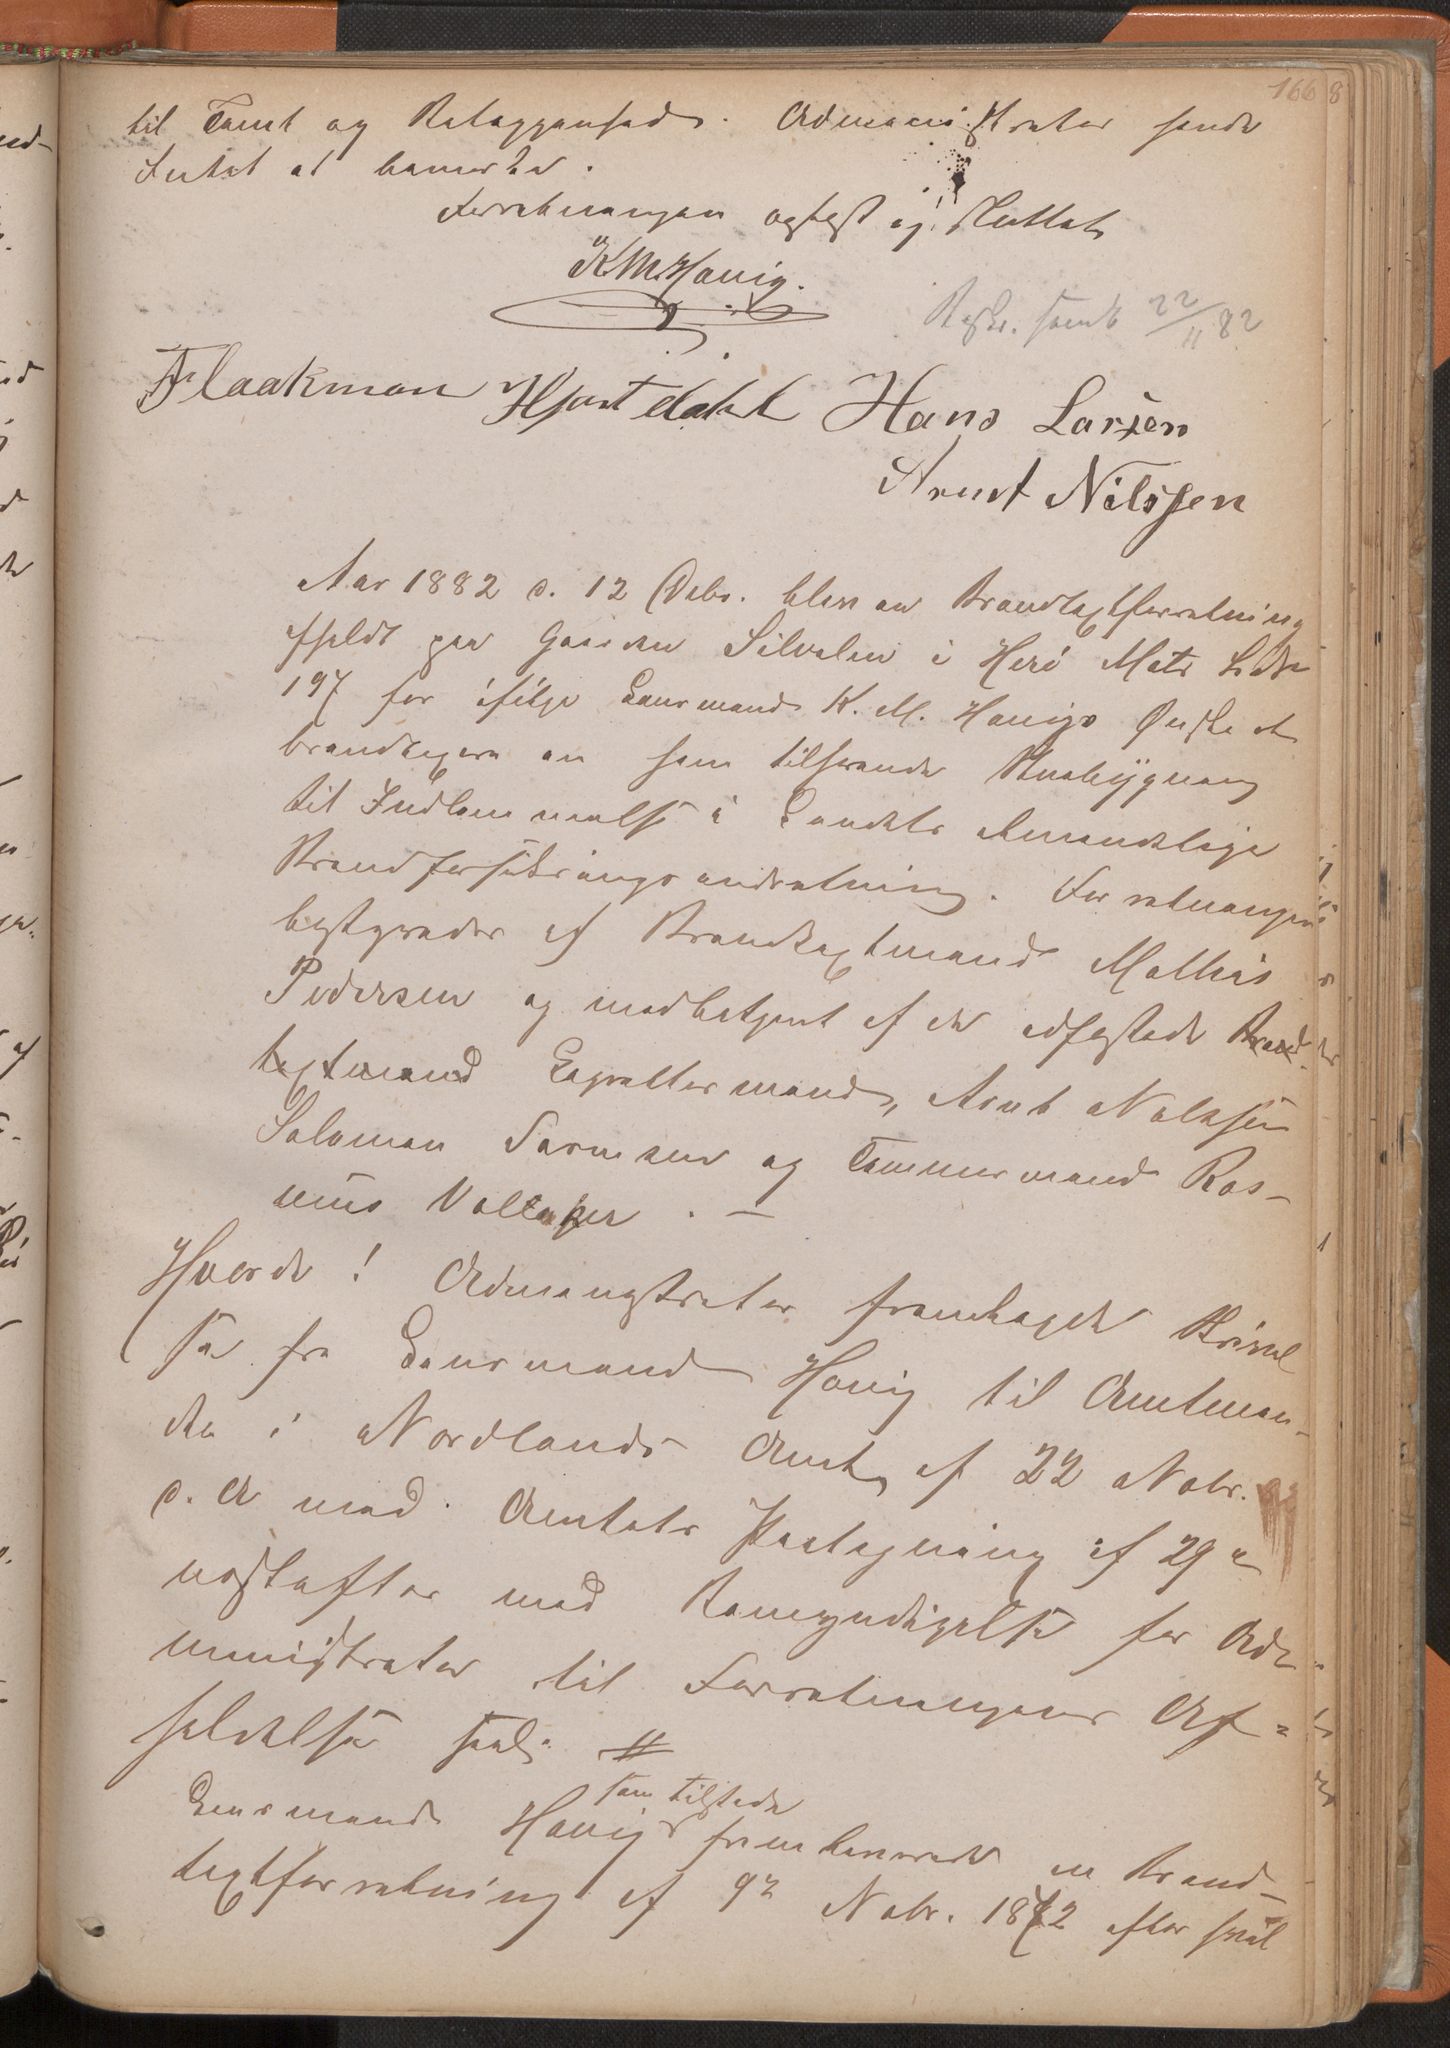 166
til Taxt og . Administrator fandt
Intet at bemærke.
Forretningen oplæst og sluttet
KMHavig.
Beskr. sendt 22/11 82
Flaakman Hjortdahl Hans Larsen
Arnt Nilssen
Aar 1882 d. 12 Debr. blev en Brandtaxtforretning
afholdt paa Gaarden Silvalen i Herø Matr Løbe
197 for ifølge Lensmand K. M. Havigs Ønske at
brandtaxere en ham tilhørende Stuebygning
til Indlemmelse i Landets almindelige
Brandforsikringsindretning. Forretningen
bestyredes af Brandtaxtmand Mathis
Pedersen og medbetjent af de edfæstede Brand
taxtmænd Lagrettesmænd, Arnt Nilssen
Salomon Sørensen og Tømmermand Ras-
mus .–
Hvorda! Administrator fremlagde Skrivel
se fra Lensmand Havig til Amtman-
den i Nordlands Amt af 22 Novbr.
d. A med Amtets Paategning af 29 s
næstefter med Bemyndigelse for Ad-
ministrator til Forretningens Af-
holdelse saal: #
Lensmand Havig som tilstede fremleverede en Brand-
taxtforretning af 9de Novbr. 1872 efter hvil